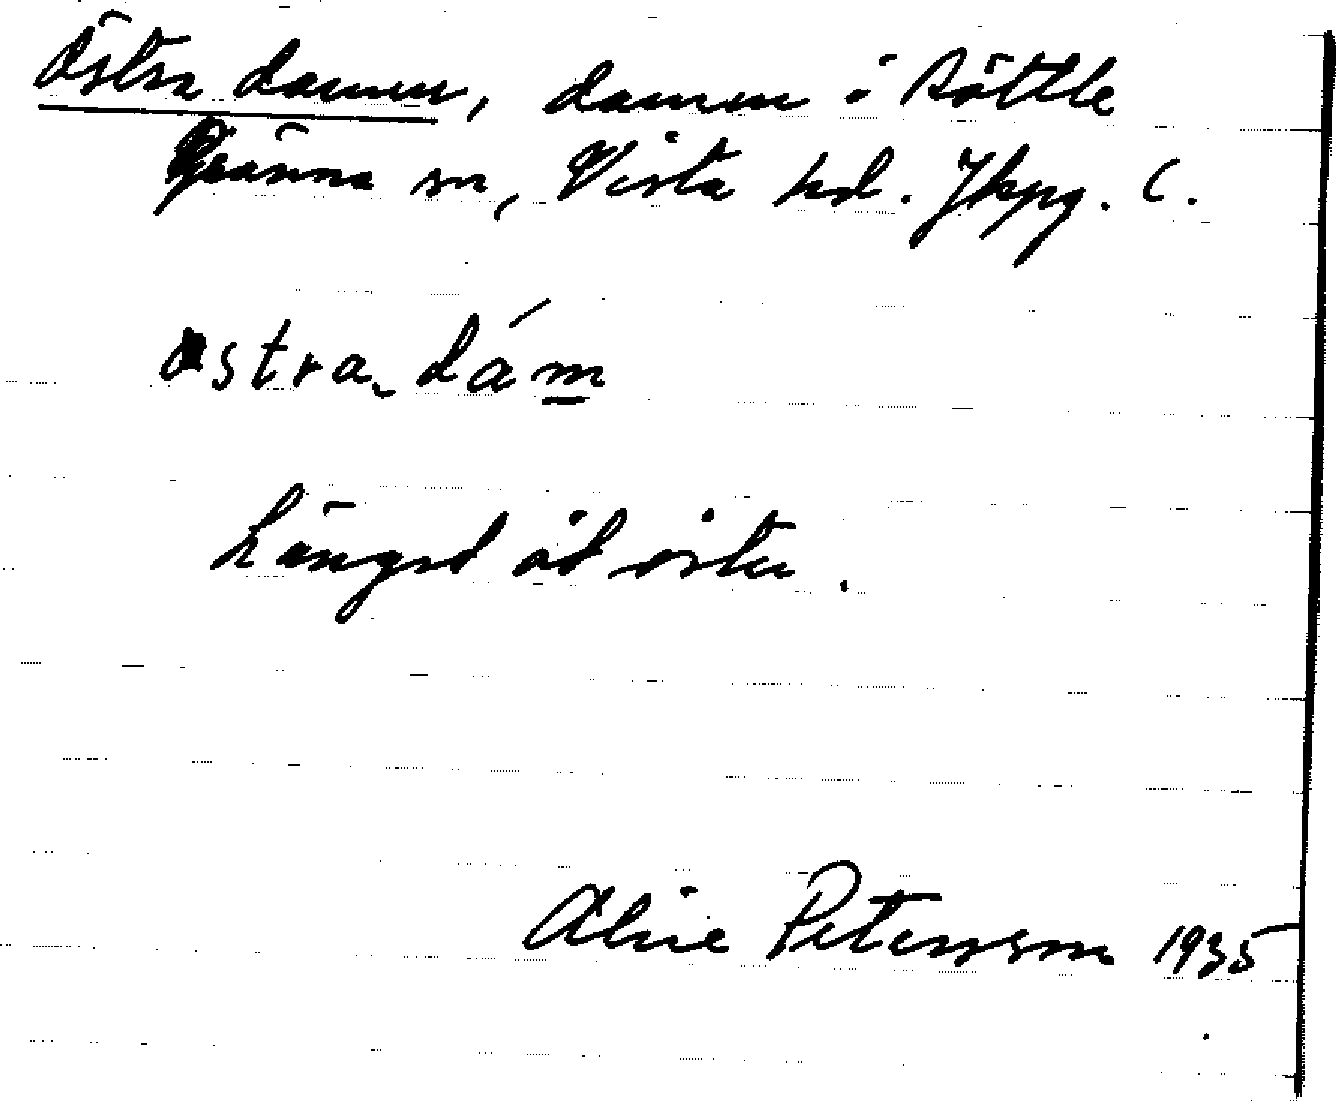 Östra dammen, dammen i Röttle
Gränna sn, Vista hd. Jkpg. C.
östra dám
Längst åt öster.
Alice Petersson 1935